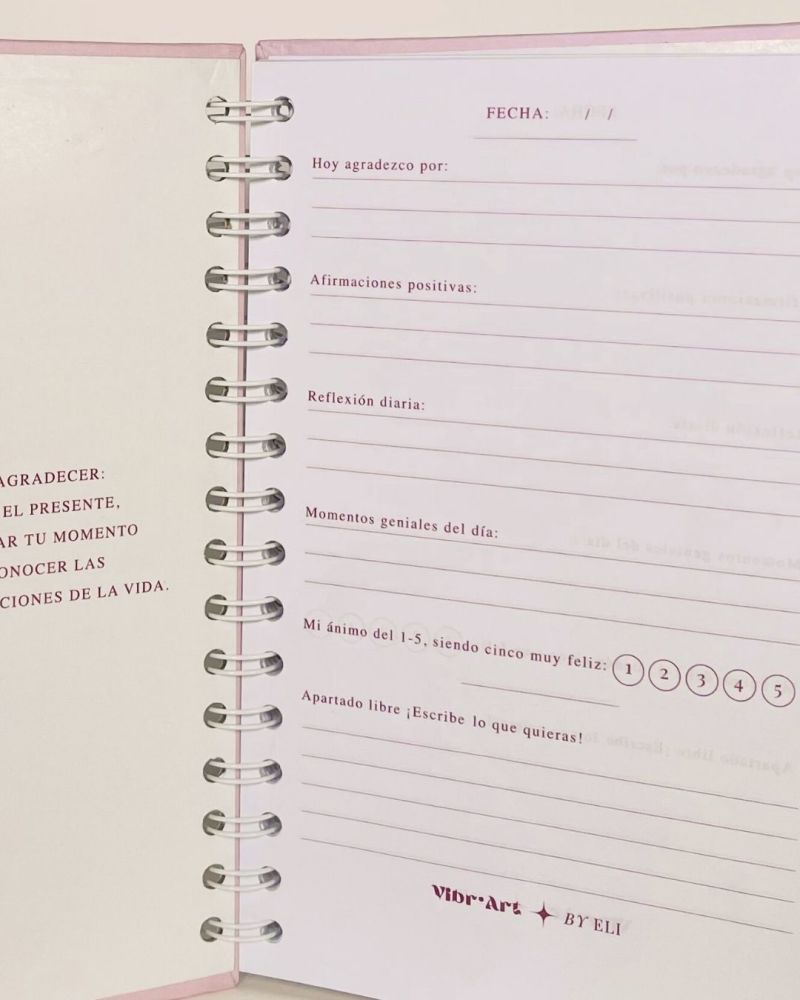 AGRADECER:
EL PRESENTE,
TU MOMENTO
LAS
DE LA VIDA.
FECHA: / /
Hoy agradezco por:
Afirmaciones positivas:
Reflexión diaria:
Momentos geniales del día:
Mi ánimo del 1-5, siendo cinco muy feliz: 1 2 3 4 5
Apartado libre ¡Escribe lo que quieras!
Vibr·Art BY ELI